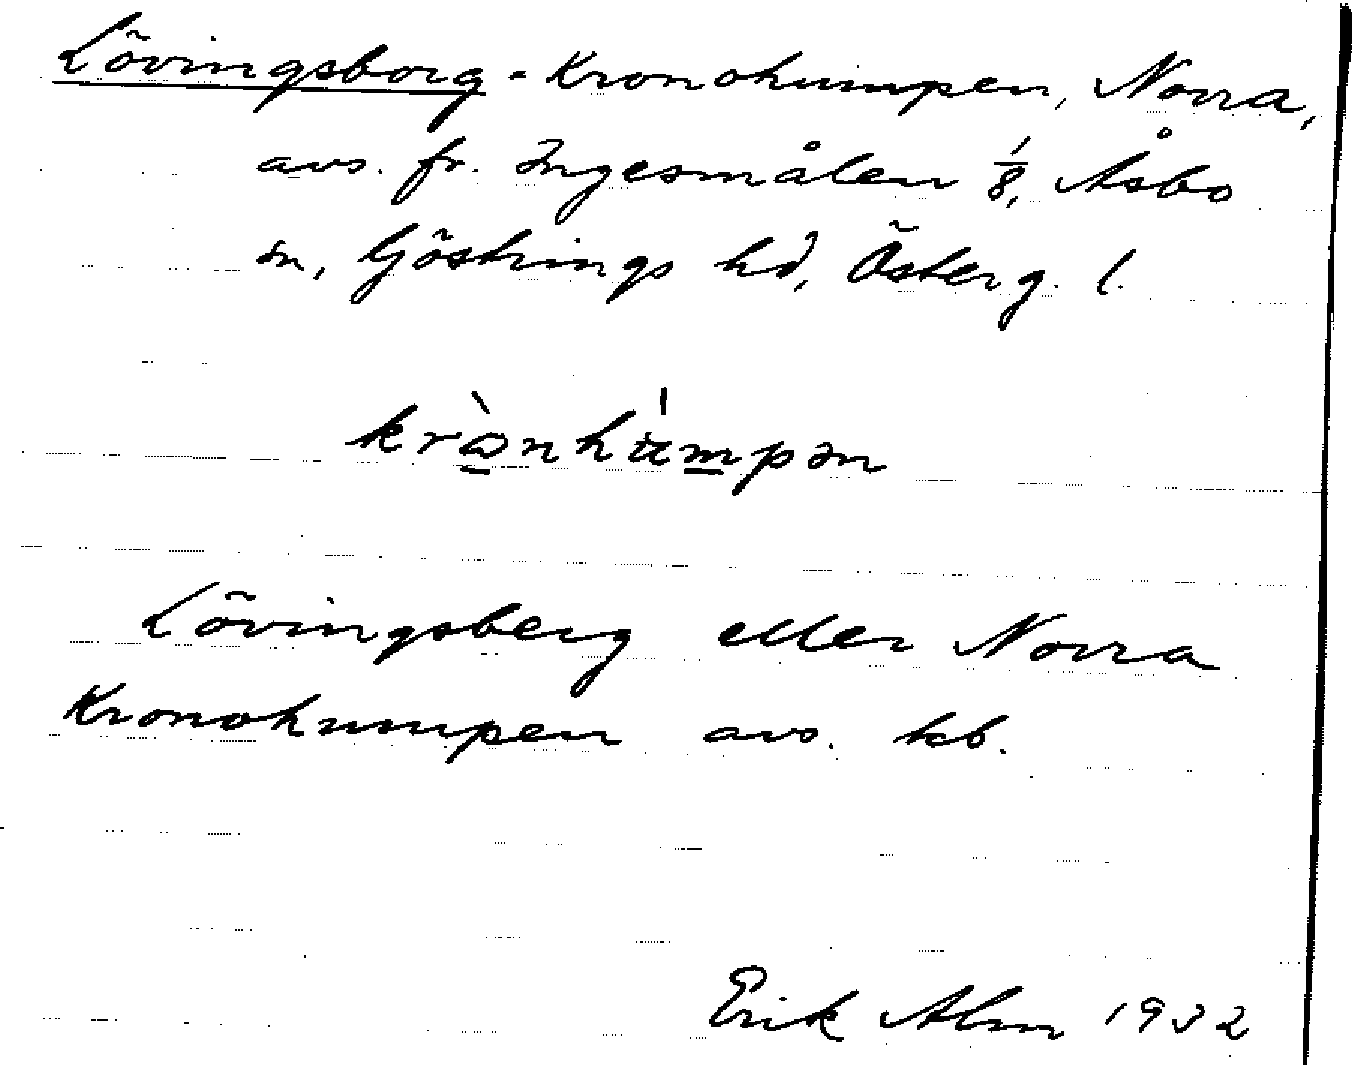 Lövingsborg - Kronohumpen, Norra,
avs. fr. Ingesmålen 1/8, Åsbo
sn, Göstrings hd, Österg. l.
krɷ̀nhu̇mpən
Lövingsberg eller Norra
Kronohumpen avs. kb.
Erik Alm 1932